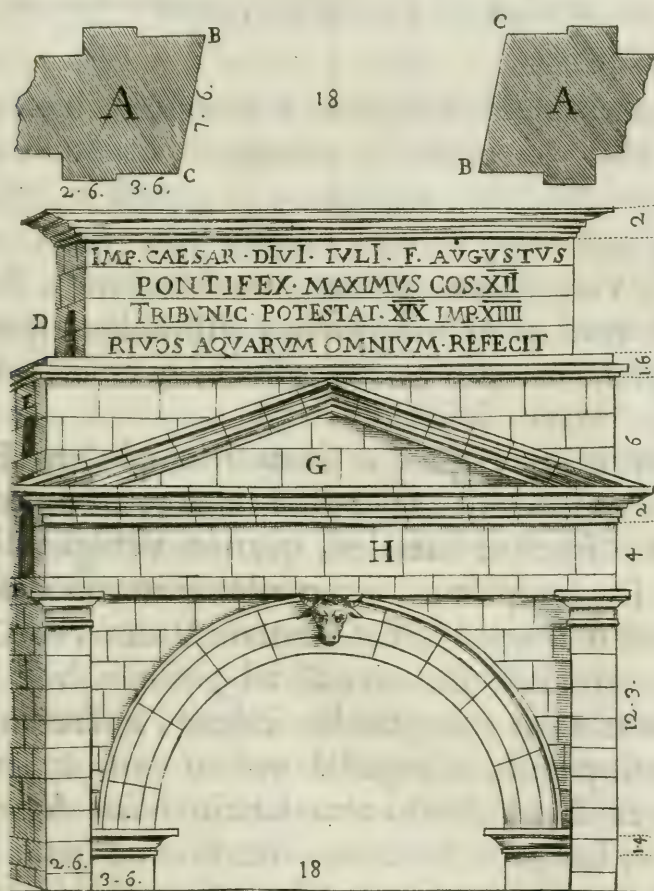 B
C
A
18
A
7. 6.
C
B
2. 6. 3. 6.
2
IMP. CAESAR · DIVI · IVLI · F. AVGVSTVS
PONTIFEX · MAXIMVS COS. X̅I̅I̅
D
TRIBVNIC · POTESTAT · X̅I̅X̅ IMP. X̅I̅I̅I̅I̅
RIVOS AQVARVM OMNIVM · REFECIT
1.6
6
G
2
H
4
12. 3.
1.4
2. 6.
3. 6.
18